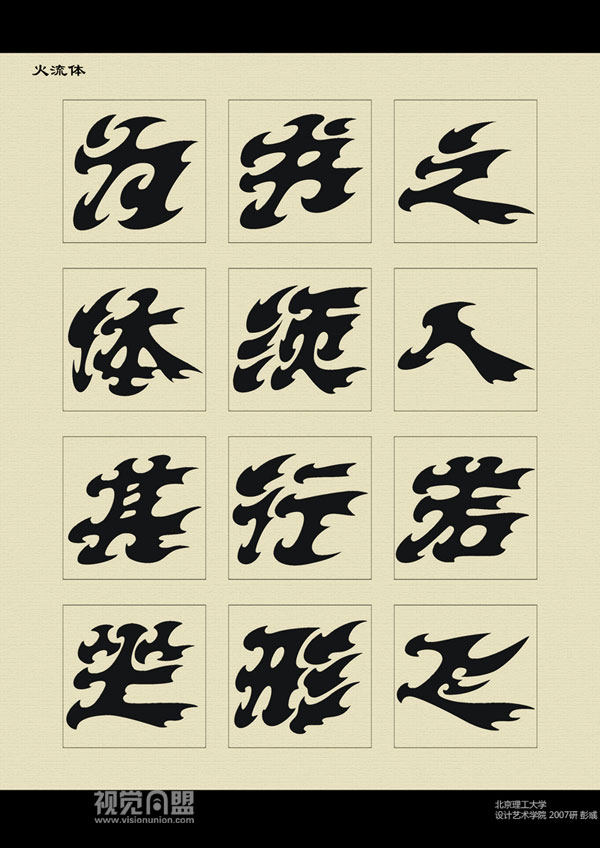 火流体
为书之
体须入
其行若
坐形飞
视觉同盟
www.visionunion.com
北京理工大学
设计艺术学院 2007研